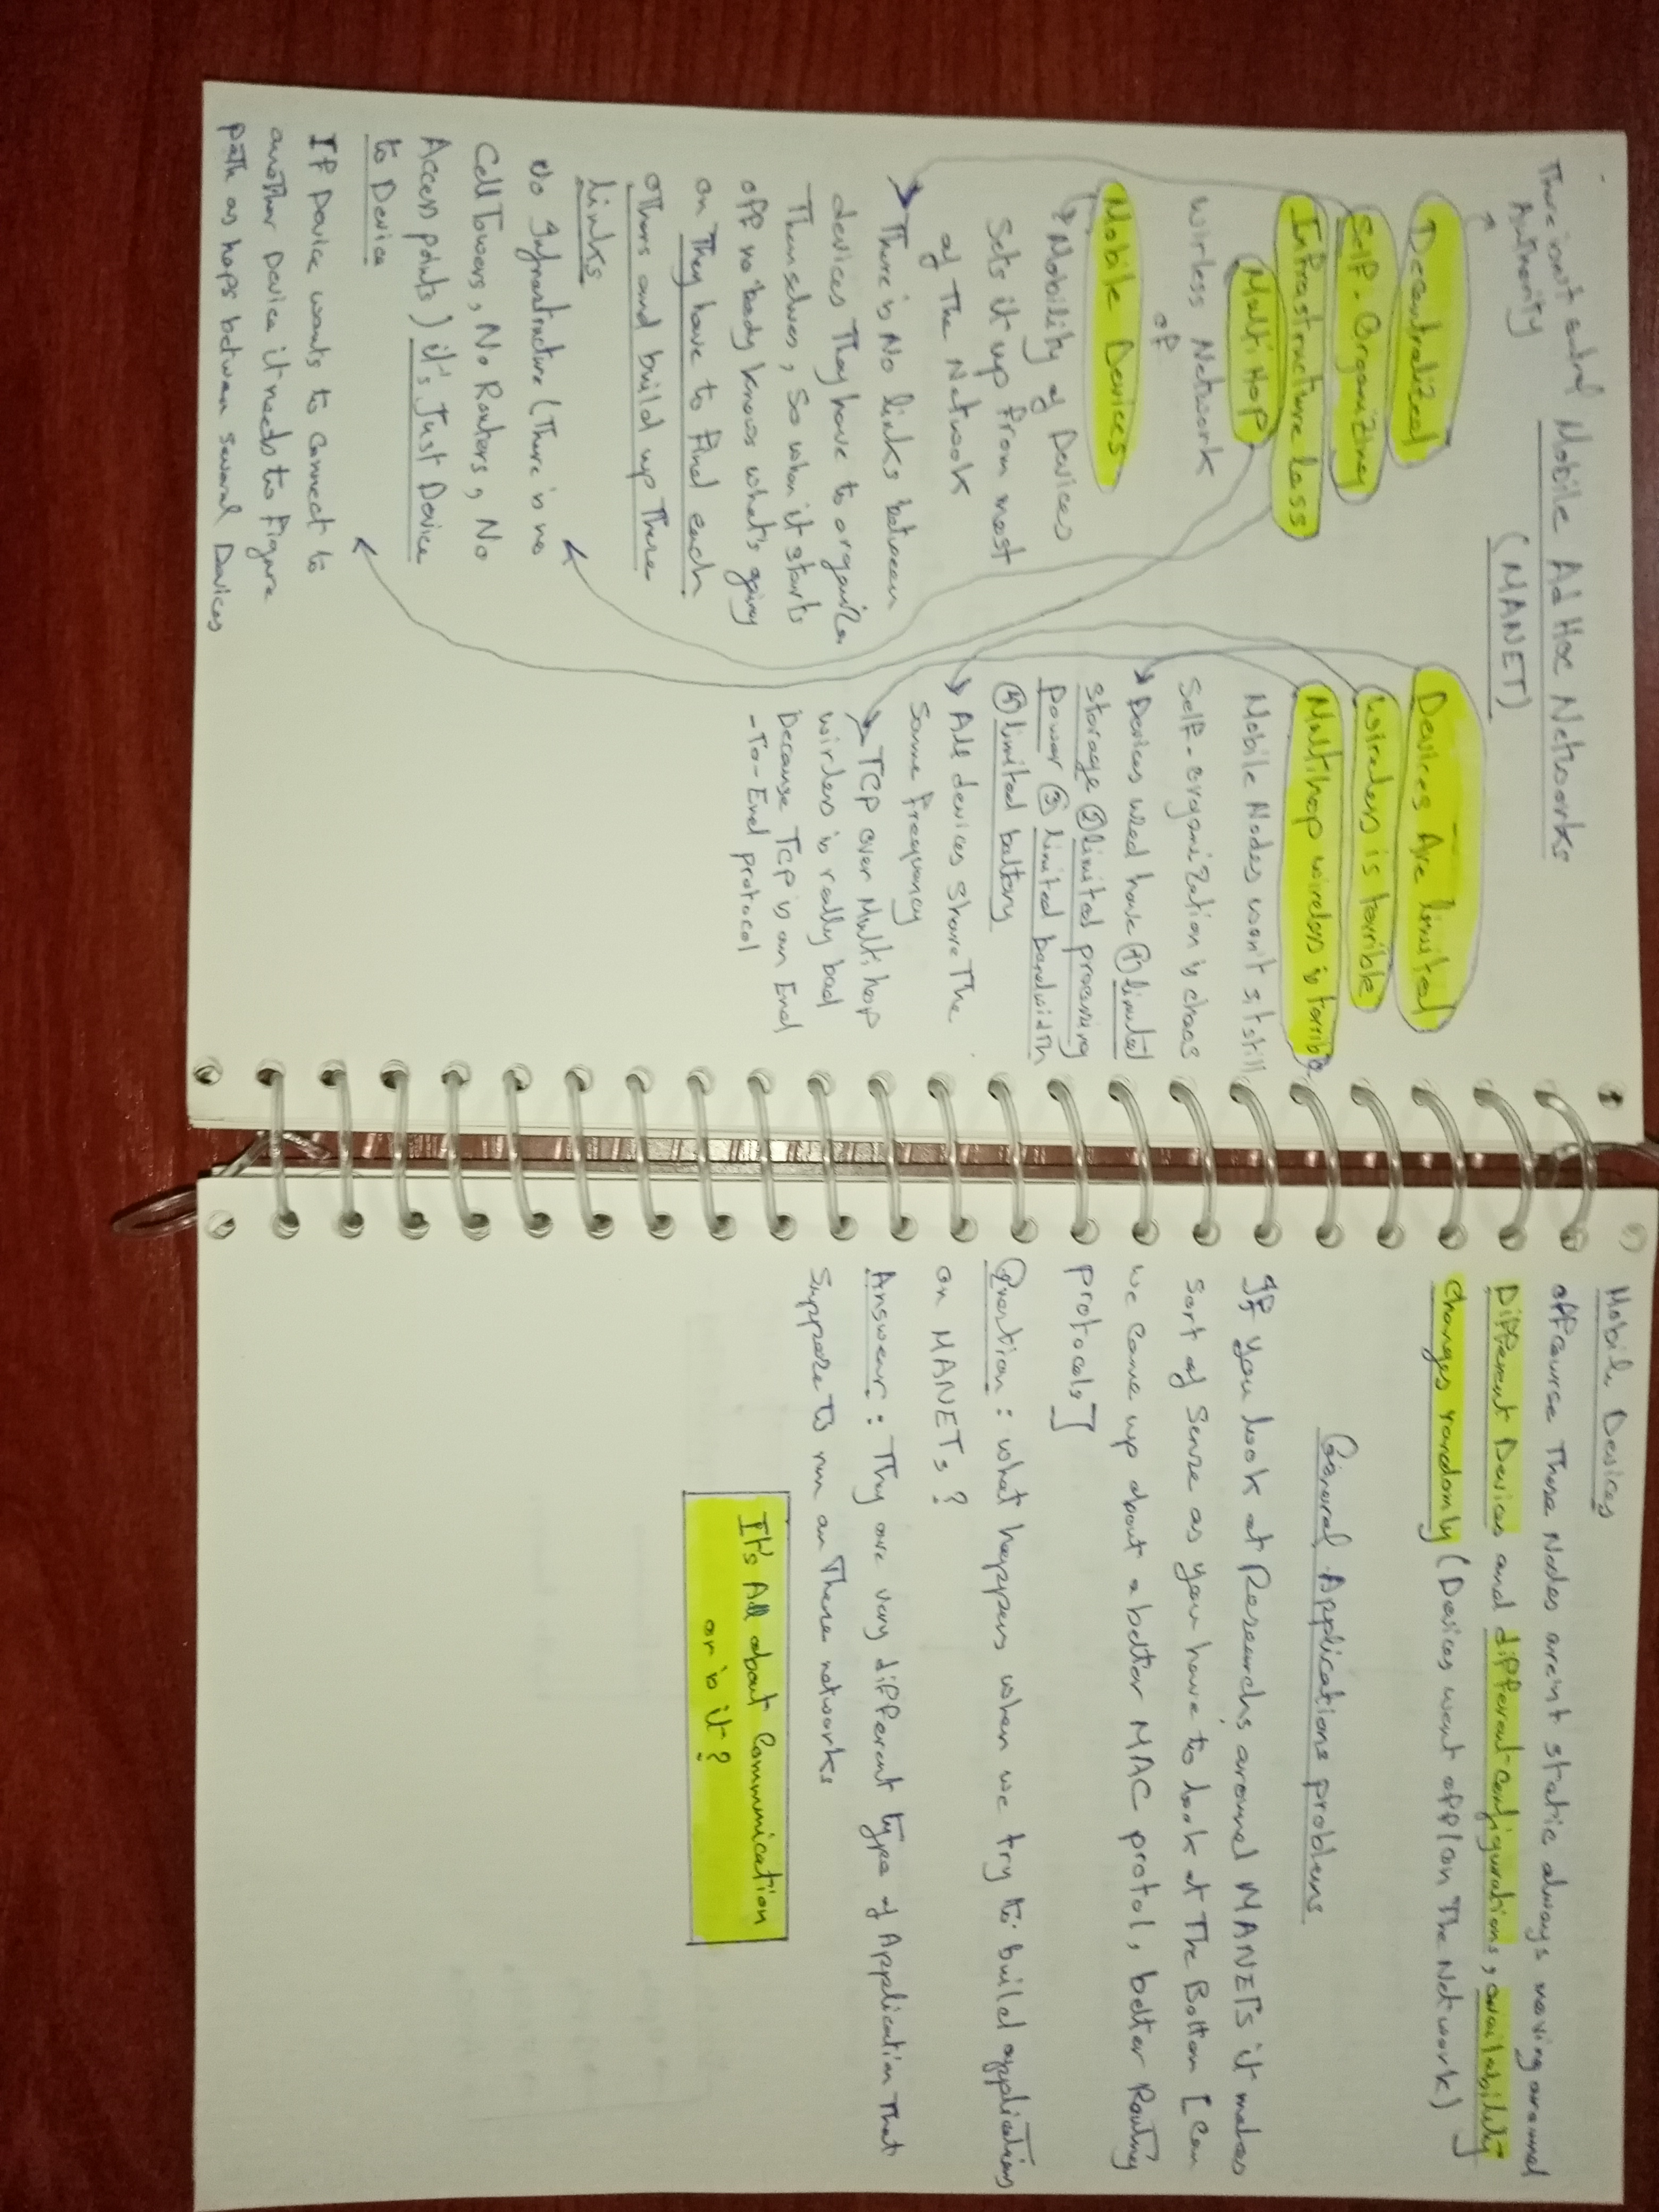 Mobile Ad Hoc Networks
(MANET)
There isn't central
Authority
Decentralized
Self-Organizing
Infrastructure less
Multi Hop
wireless Network
of
Mobile Devices
Mobility of Devices
Sets it up from most
of The Network
There is No links between
devices They have to organize
Themselves, So when it starts
off no body knows what's going
on They have to find each
others and build up There
links
No Infrastructure (There is no
Cell Towers, No Routers, No
Access points) it's Just Device
to Device
If Device wants to connect to
another Device it needs to Figure
path as hops between several Devices
Devices Are limited
wireless is terrible
Multihop wireless is terrible
Mobile Nodes won't sit still
Self-organization is chaos
Devices used have ① limited
storage ② limited processing
power ③ limited bandwidth
④ limited battery
All devices share The
Same Frequency
TCP over Multi hop
wirless is really bad
Because Tcp is an End
-To-End protocol
Mobile Devices
offcourse These Nodes aren't static always moving around
Different Devices and different configurations, availability
changes randomly (Devices went off/on The Network)
General Applications problems
If you look at Researchs around MANETs it makes
sort of Sense as you have to look at The Bottom [Can
we come up about a better MAC protol, better Routing
protocols]
Question: what happens when we try to build applications
on MANETs?
Answer: They are very different type of Application That
Suppose To run on There networks
It's All about Communication
or is it?